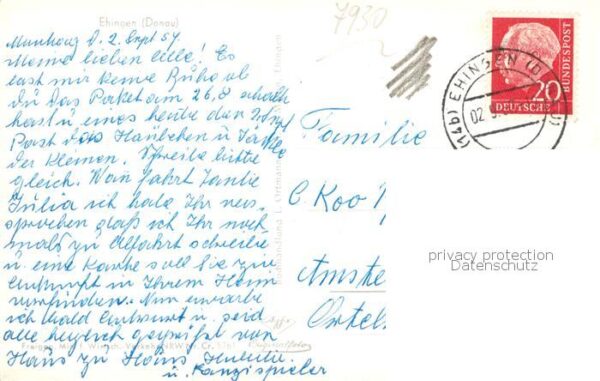 Ehingen (Donau)
7930
Munking d. 2. Sept 54
Meine lieben alle! Es
last mir keine Ruhe ob
du das Paket am 26,8 erhalten
hast u eines heute den
Post das Häubchen u Jacke
der kleinen. Schreibe bitte
gleich. Wan fährt Tante
Julia ich habe Ihr ver
sprochen daß ich Ihr noch
mals zu Abfahrt schreibe
u. eine Karte soll Sie zur
Ankunft in Ihrem Heim
vorfinden. Nun erwarte
ich bald Antwort u. seid
alle herzlich gegrüßt von
Haus zu Haus
u. Kanzispieler
Familie
C. Koo
Amste
Ortel
(14b) EHINGEN (D
02
20
DEUTSCHE
BUNDESPOST
privacy protection
Datenschutz